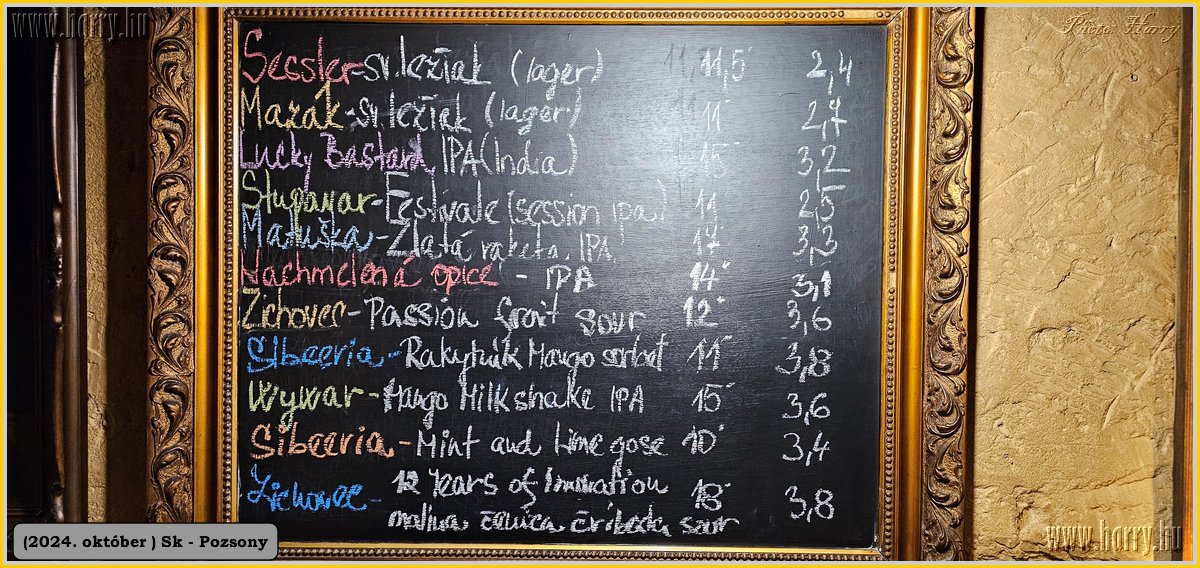 www.horry.hu
Photo: Horry
Sessler-sv.ležiak (lager) 11,5° 2,4
Mazák-sv.ležiak (lager) 11° 2,7
Lucky Bastard IPA (India) 15° 3,2
Stupavar-Festivale (session ipa) 11° 2,5
Matuška-Zlatá raketa IPA 17° 3,3
Nachmelená opice - IPA 14° 3,1
Zichovec-Passion fruit sour 12° 3,6
Sibeeria-Rakytník Mango sorbet 11° 3,8
Wywar-Mango Milkshake IPA 15° 3,6
Sibeeria-Mint and Lime gose 10° 3,4
Zichovec- 12 Years of Innovation 18° 3,8
malina sour
(2024. október ) Sk - Pozsony
www.horry.hu